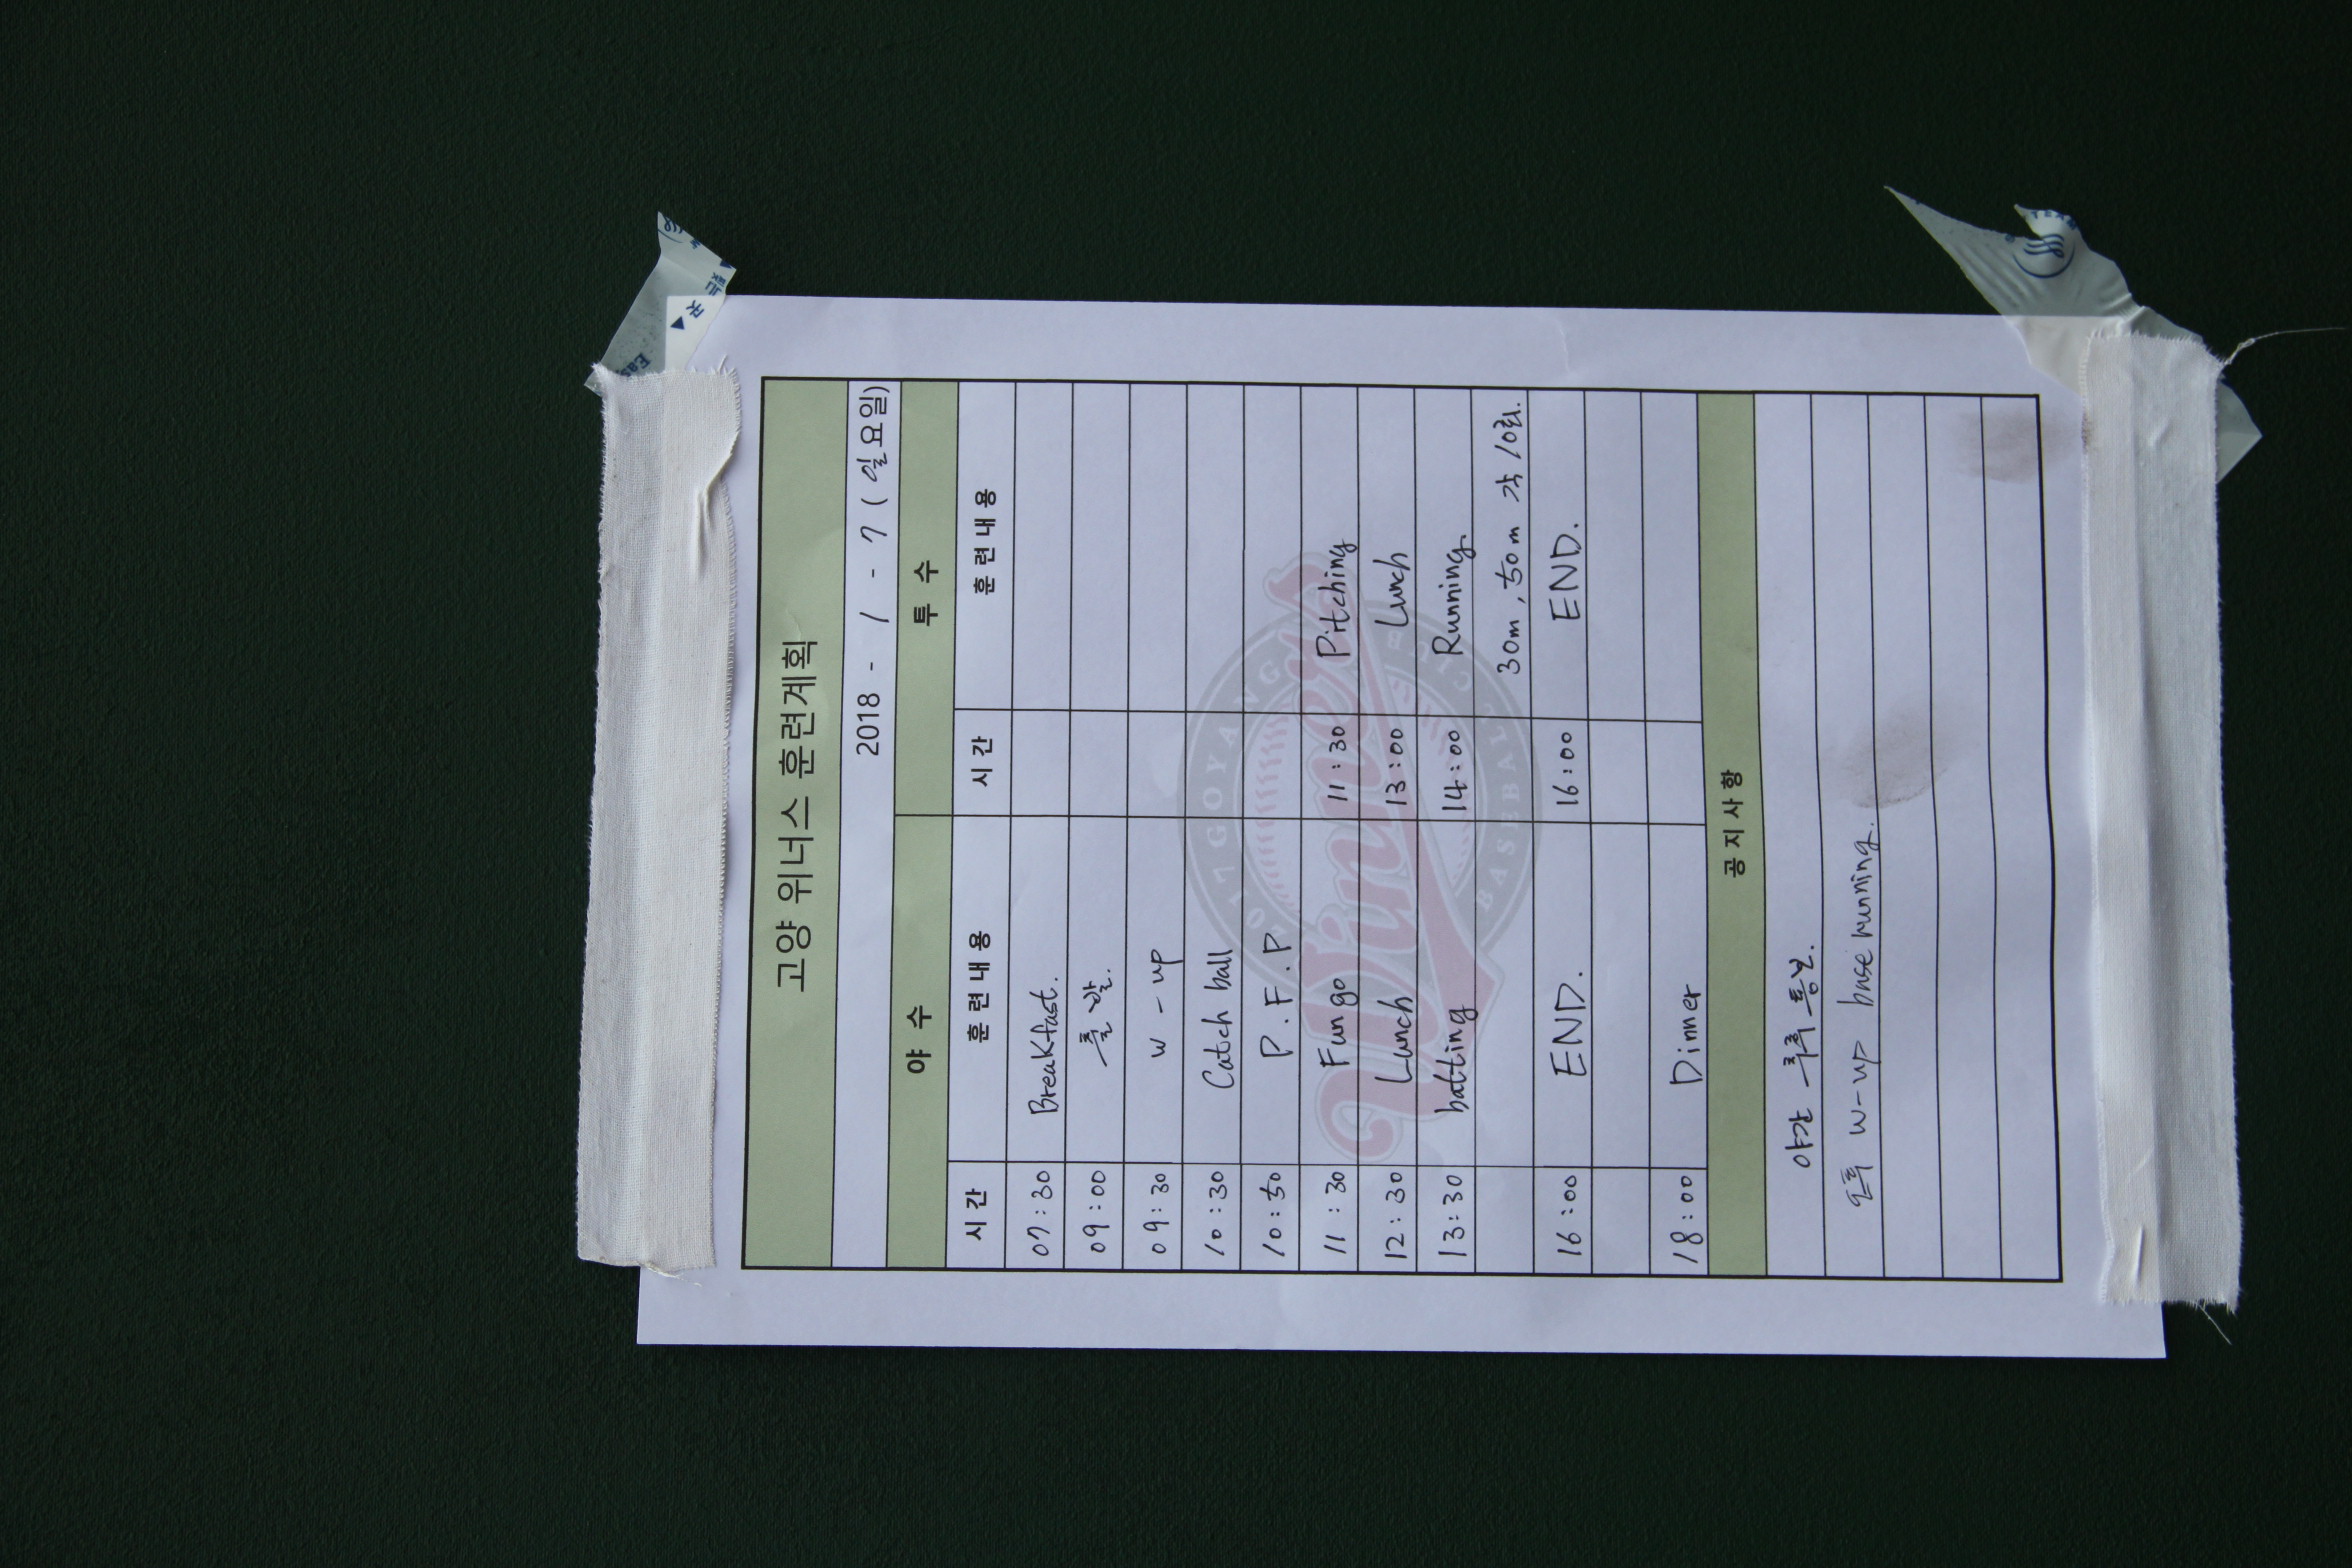 고양 위너스 훈련계획
2018 - 1 - 7 (일요일)
야 수 투 수
시 간 훈 련 내 용 시 간 훈 련 내 용
07:30 Breakfast.
09:00 출발.
09:30 W-up
10:30 Catch ball
10:50 P.F.P
11:30 Fungo 11:30 Pitching
12:30 Lunch 13:00 Lunch
13:30 batting 14:00 Running
30m, 50m 각 10회.
16:00 END. 16:00 END.
18:00 Dinner
공 지 사 항
야간 추후 통보.
W-up base running.
2017 GOYANG
Winners
BASEBALL CLUB